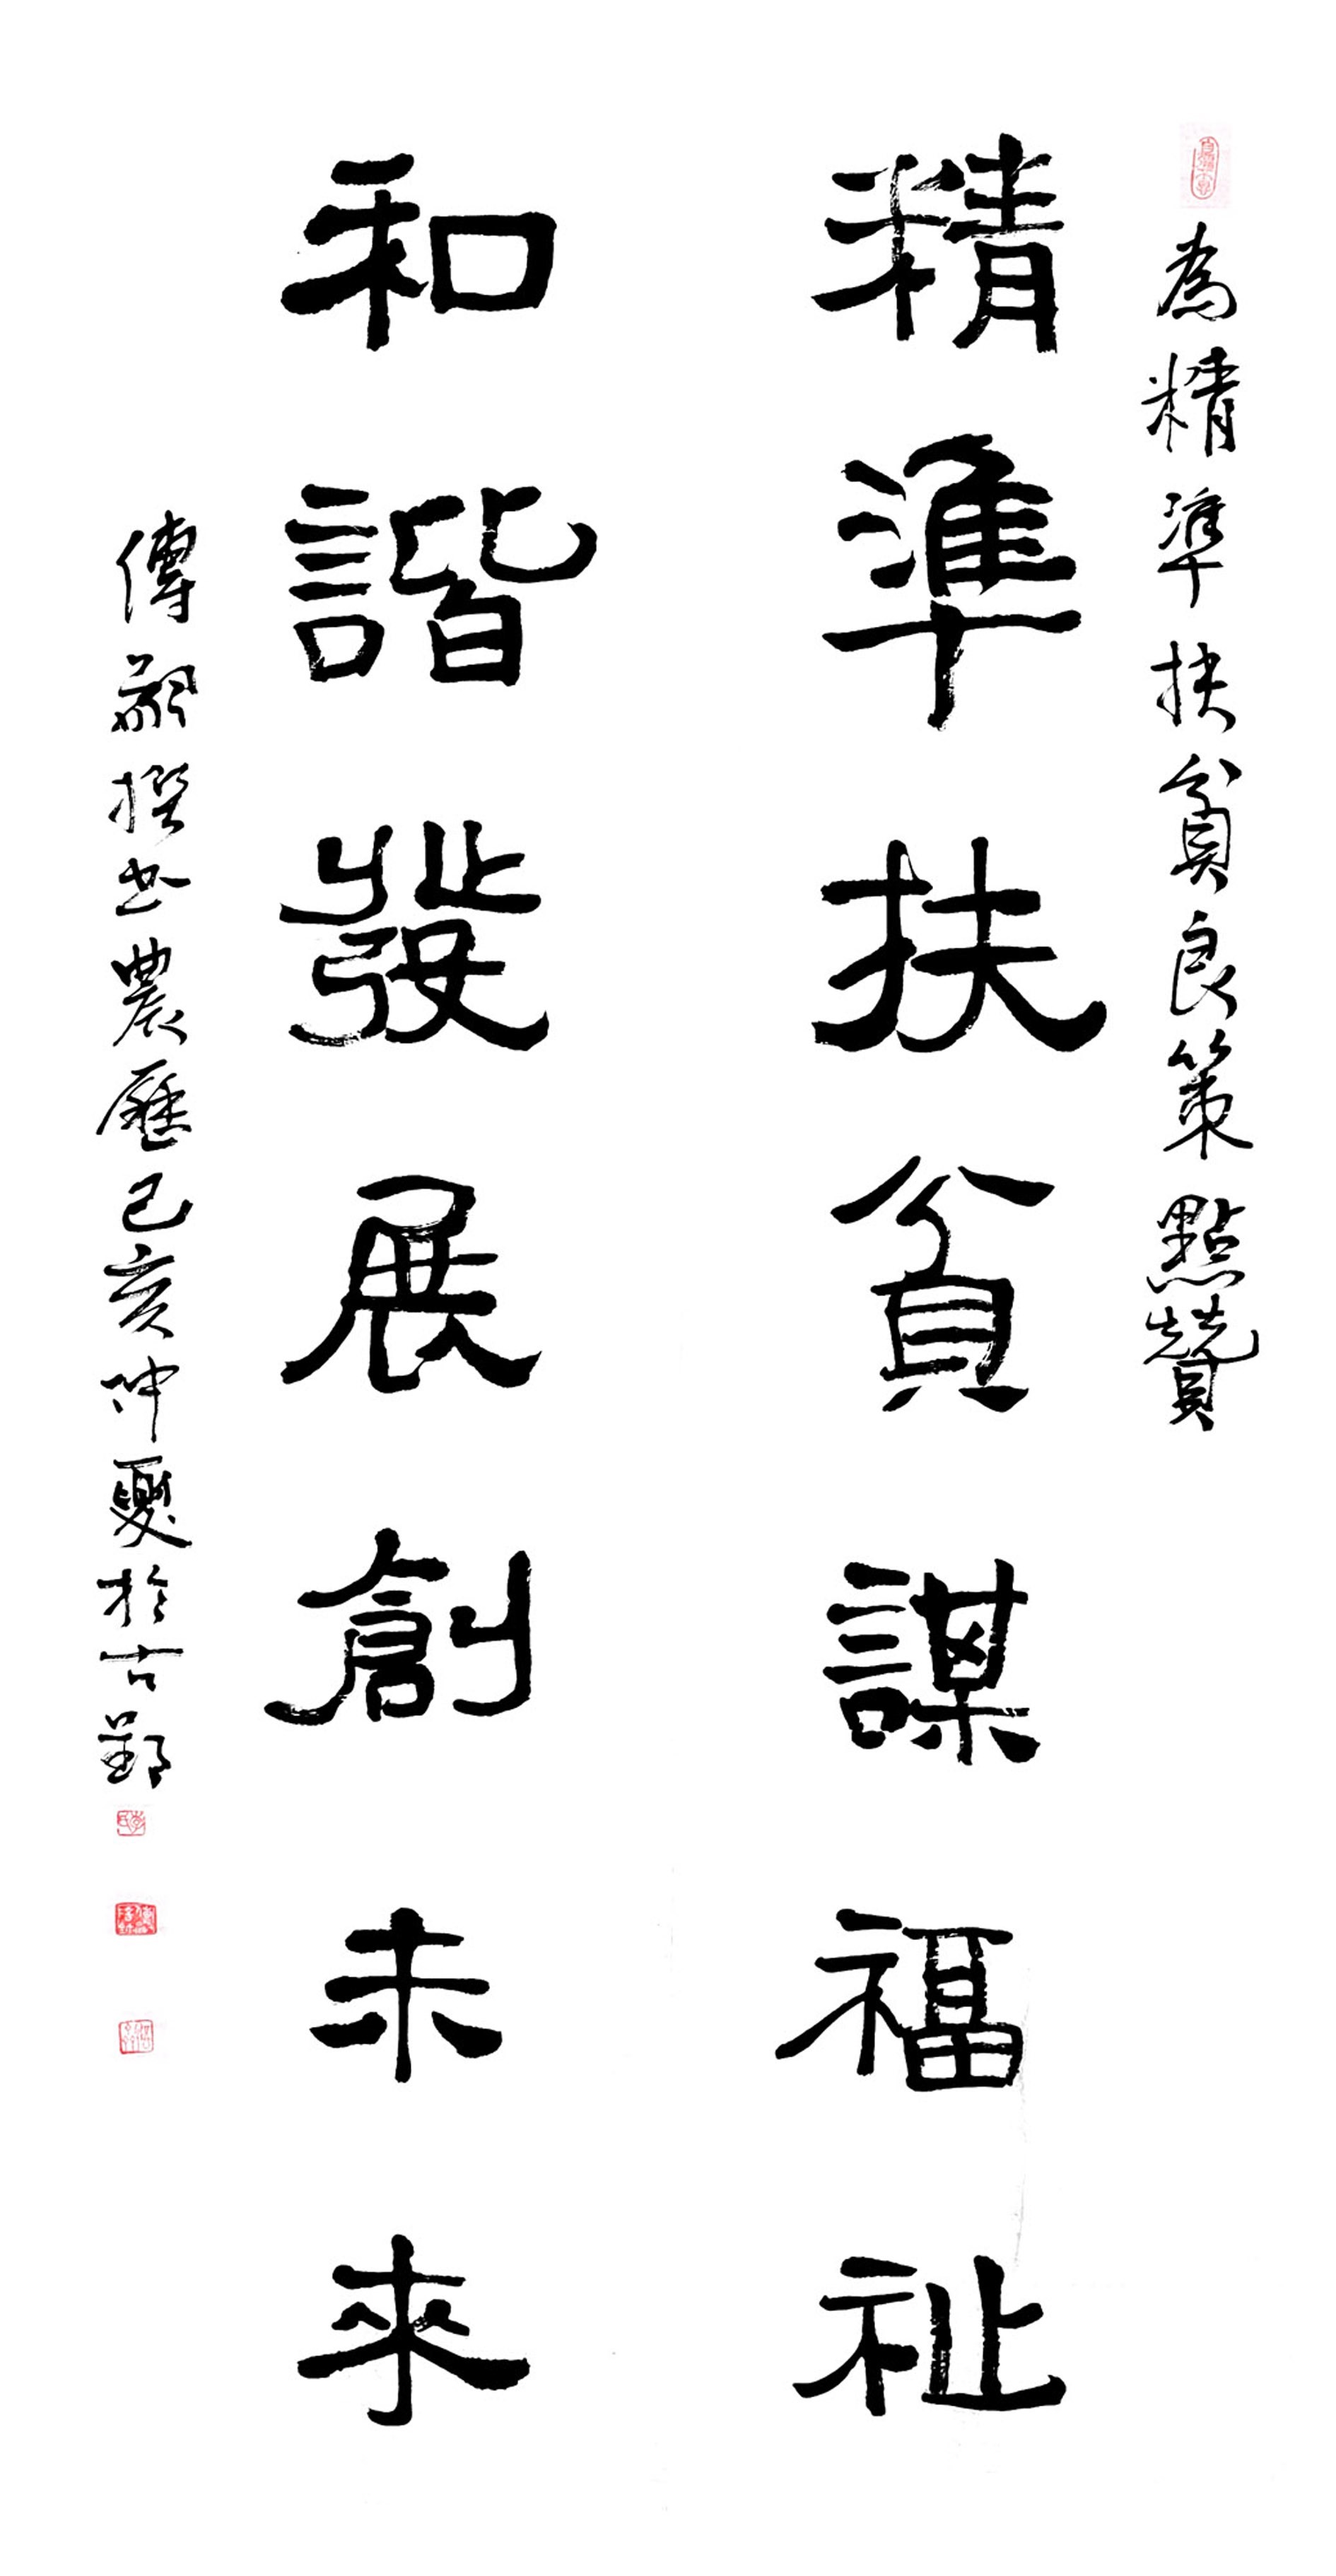 為精準扶貧良策點贊
精準扶貧謀福祉
和諧發展創未來
傳嗣撰書農歷己亥仲夏於古鄞